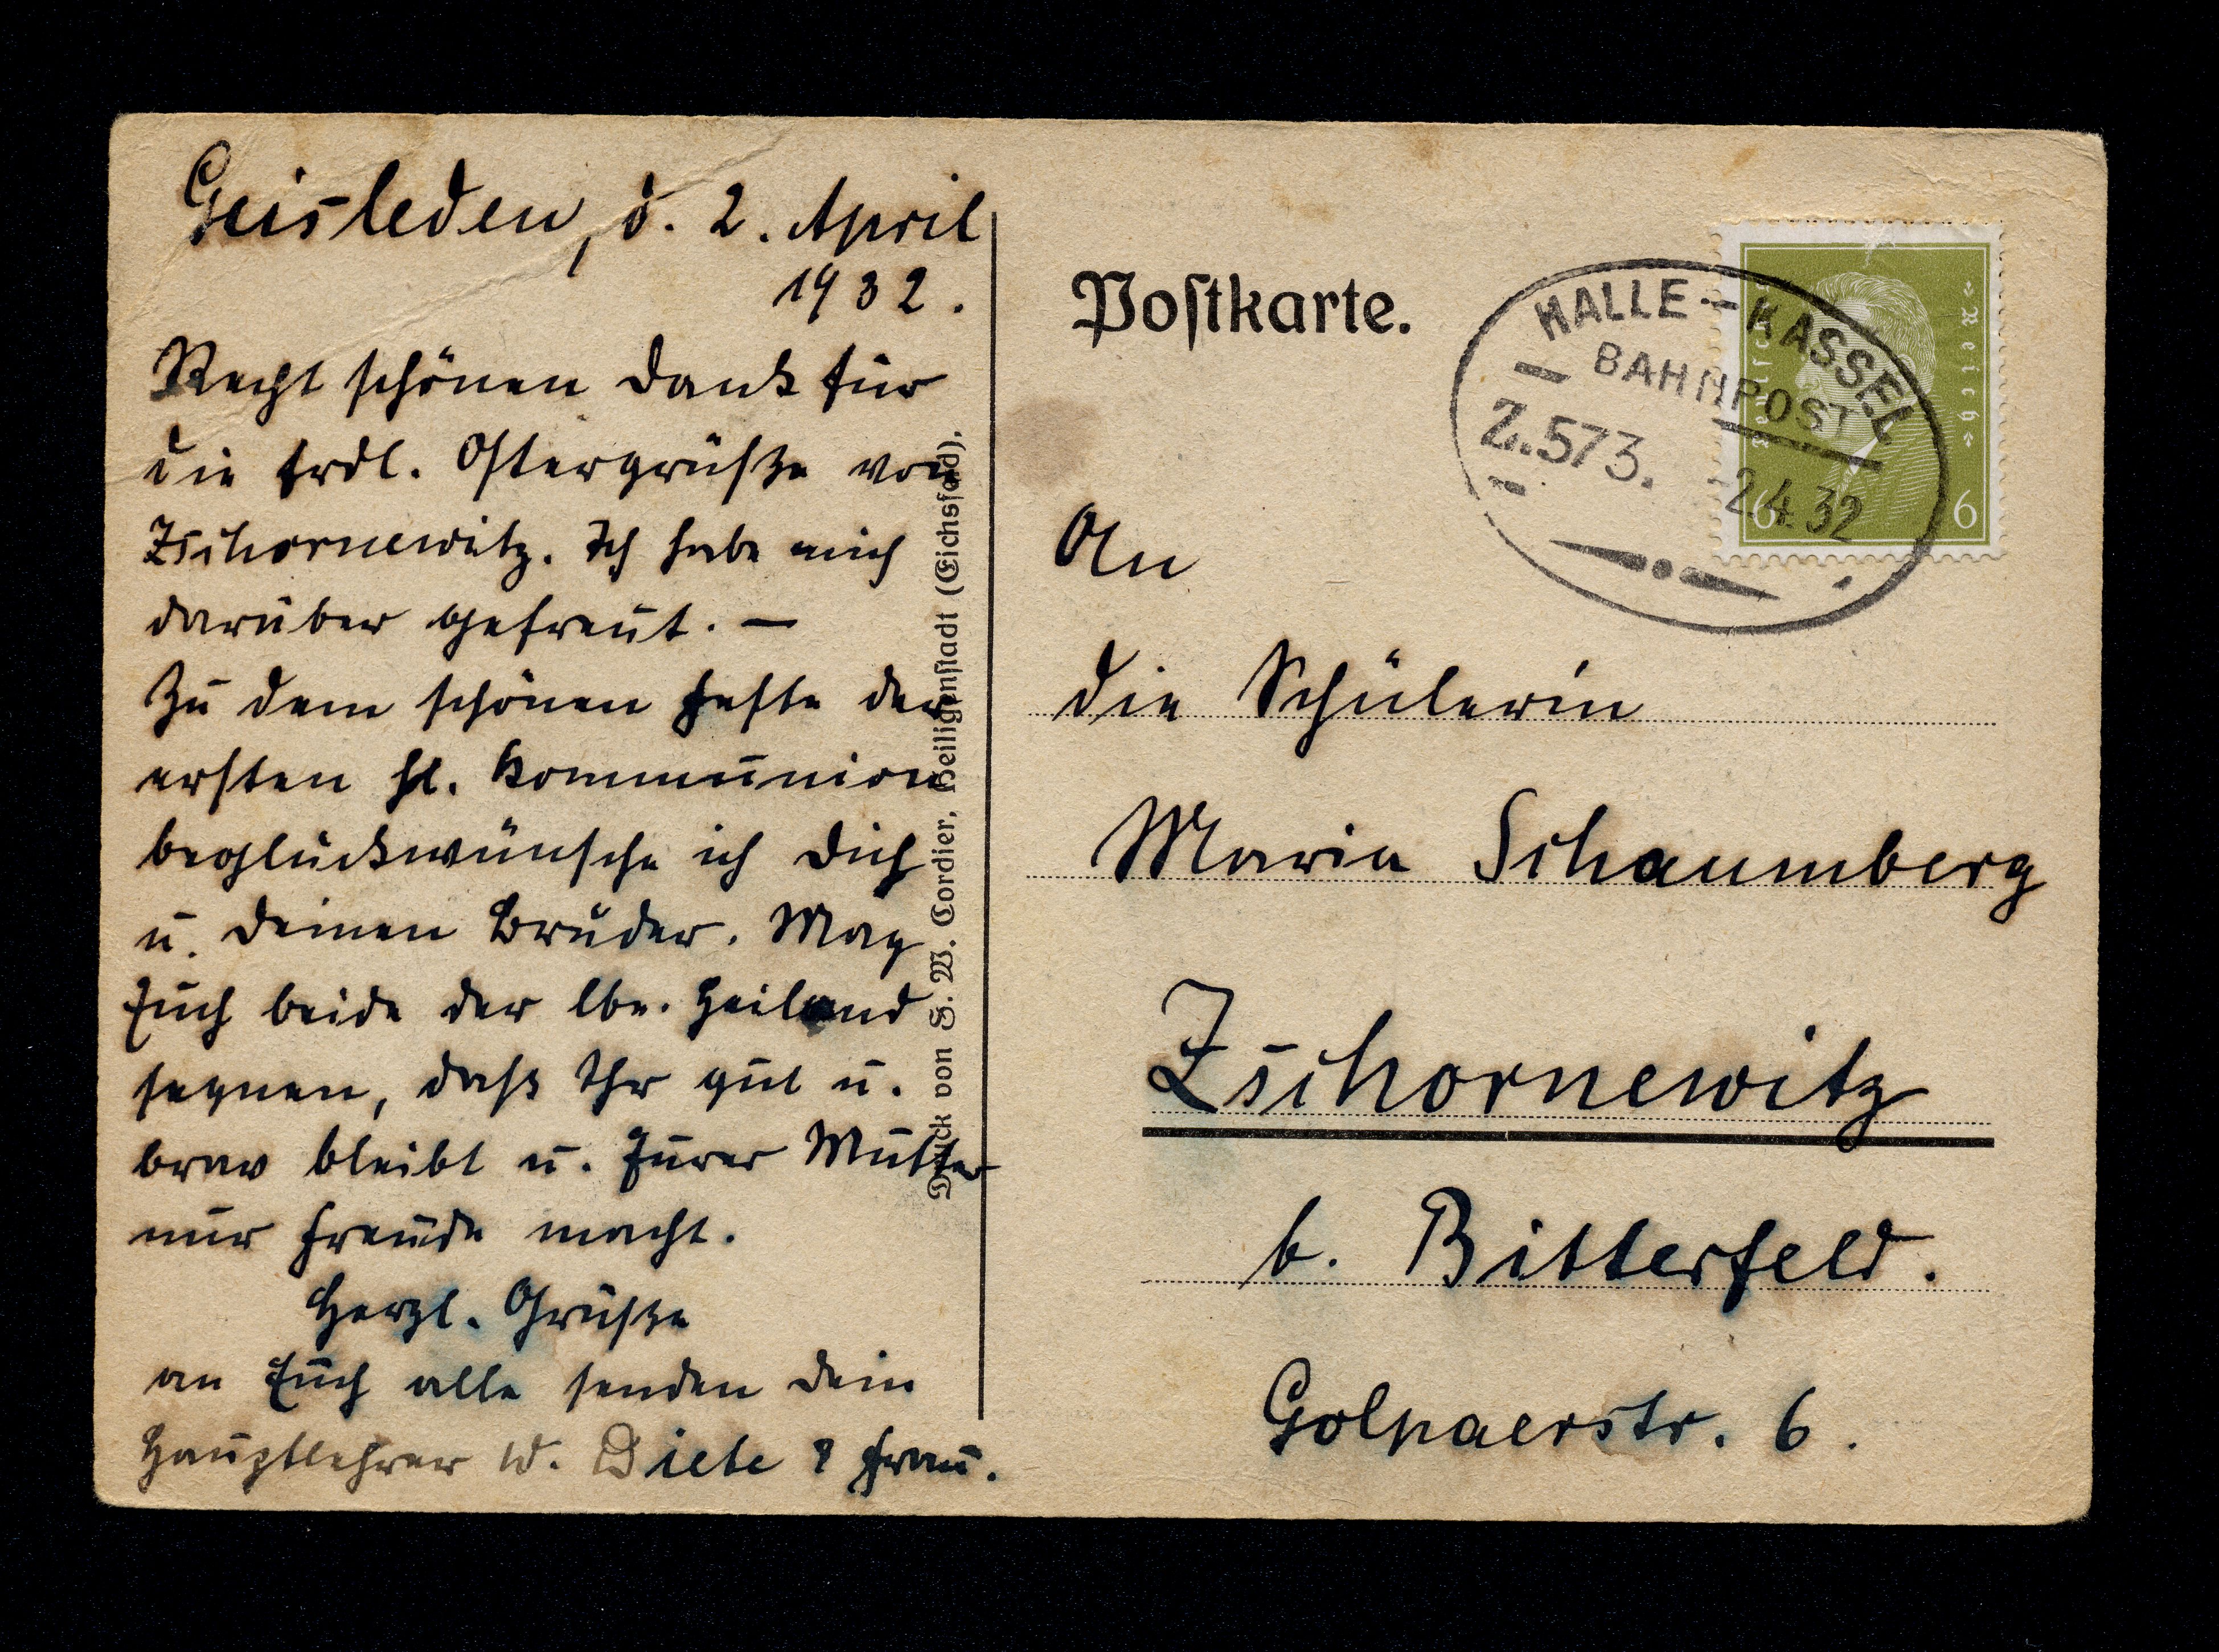 Geisleden, d. 2. April
1932.
Recht schönen Dank für
die frdl. Ostergrüße von
Zschornewitz. Ich habe mich
darüber gefreut. —
Zu dem schönen Feste der
ersten hl. Kommunion
beglückwünsche ich Dich
u. Deinen Bruder. Mag
Euch beide der lbe. Heiland
segnen, daß Ihr gut u.
brav bleibt u. Eurer Mutter
nur Freude macht.
Herzl. Grüße
an Euch alle senden Dein
Hauptlehrer W. Diete & Frau.
Druck von F. W. Cordier, Heiligenstadt (Eichsfeld).
Postkarte.
HALLE - KASSEL
BAHNPOST
Z.573.
-2.4.32
Deutsches
Reich
6 6
An
die Schülerin
Maria Schaumberg
Zschornewitz
b. Bitterfeld.
Golpaerstr. 6.